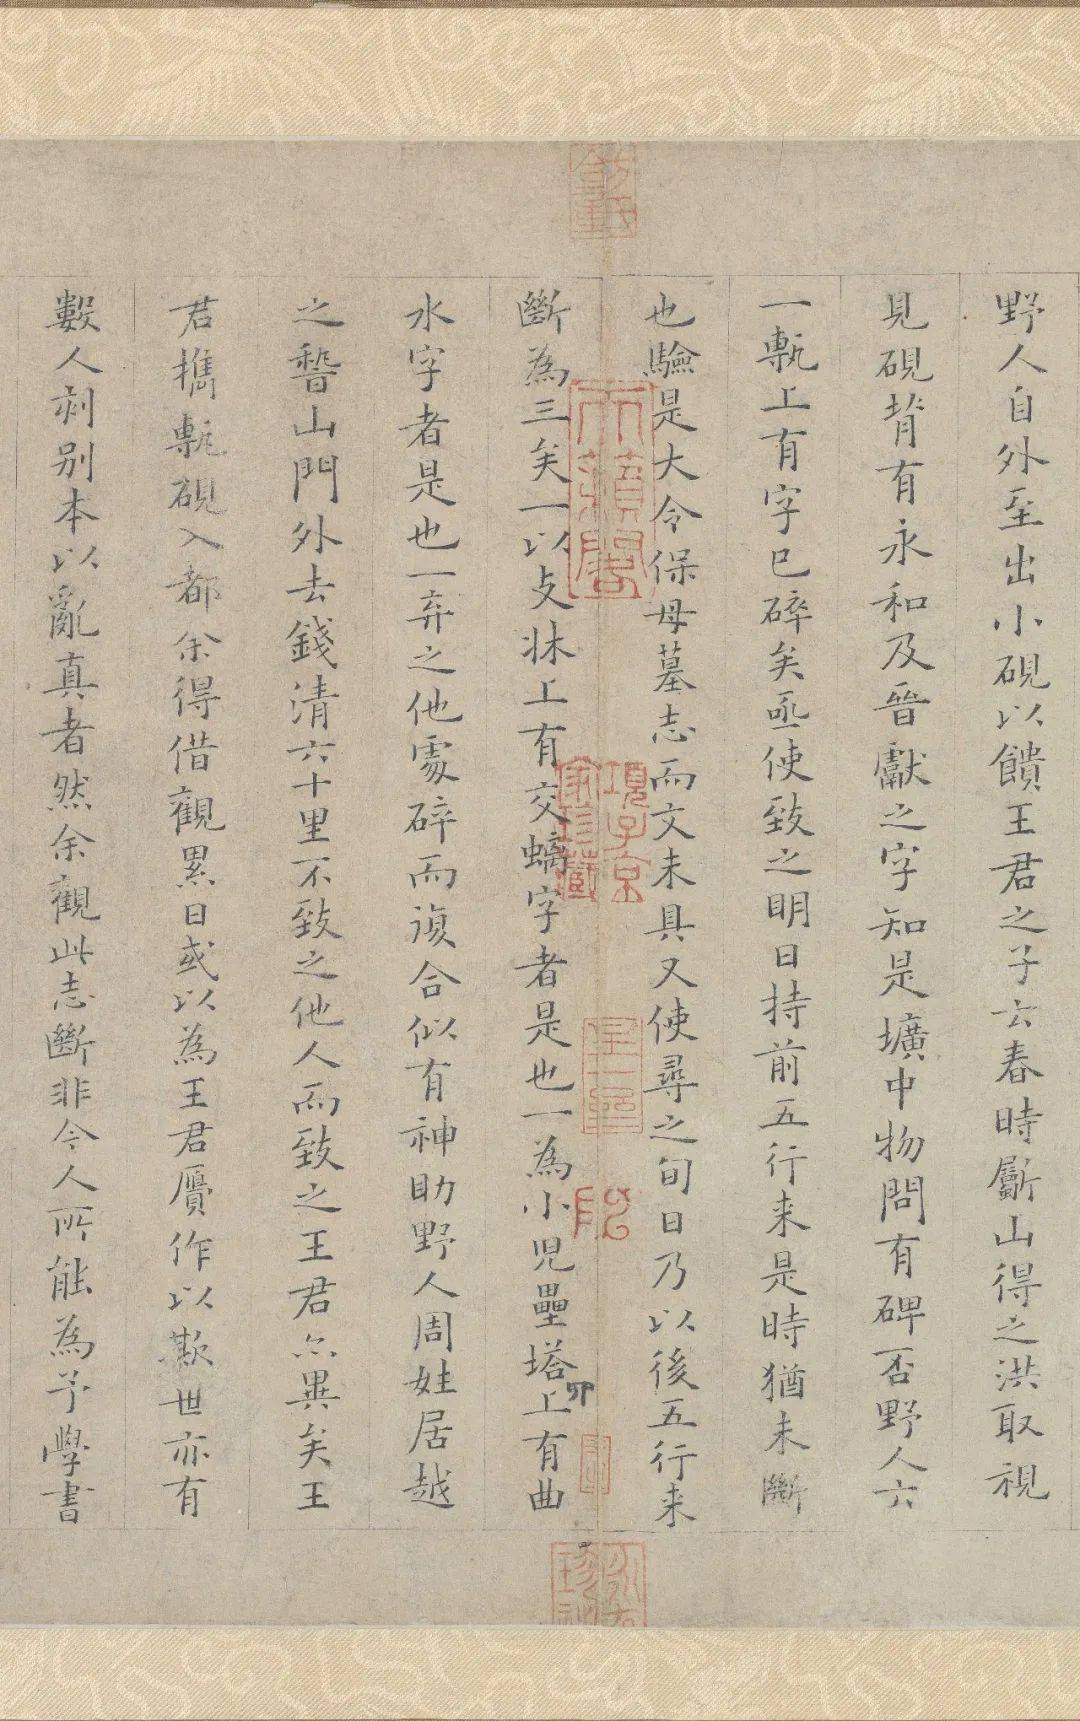 野人自外至出小硯以饋王君之子云春時斸山得之洪取視
見硯背有永和及晉獻之字知是壙中物問有碑否野人云
一甎上有字巳碎矣亟使致之明日持前五行来是時猶未斷
也驗是大令保母墓志而文未具又使尋之旬日乃以後五行来
斷為三矣一以支牀上有交螭字者是也一為小児壘塔上有曲
水字者是也一弃之他處碎而復合似有神助野人周姓居越
之稽山門外去錢清六十里不致之他人而致之王君亦異矣王
君攜甎硯入都余得借觀累日或以為王君贗作以欺世亦有
數人刻别本以亂真者然余觀此志斷非今人所能為予學書
項子京
家珍藏